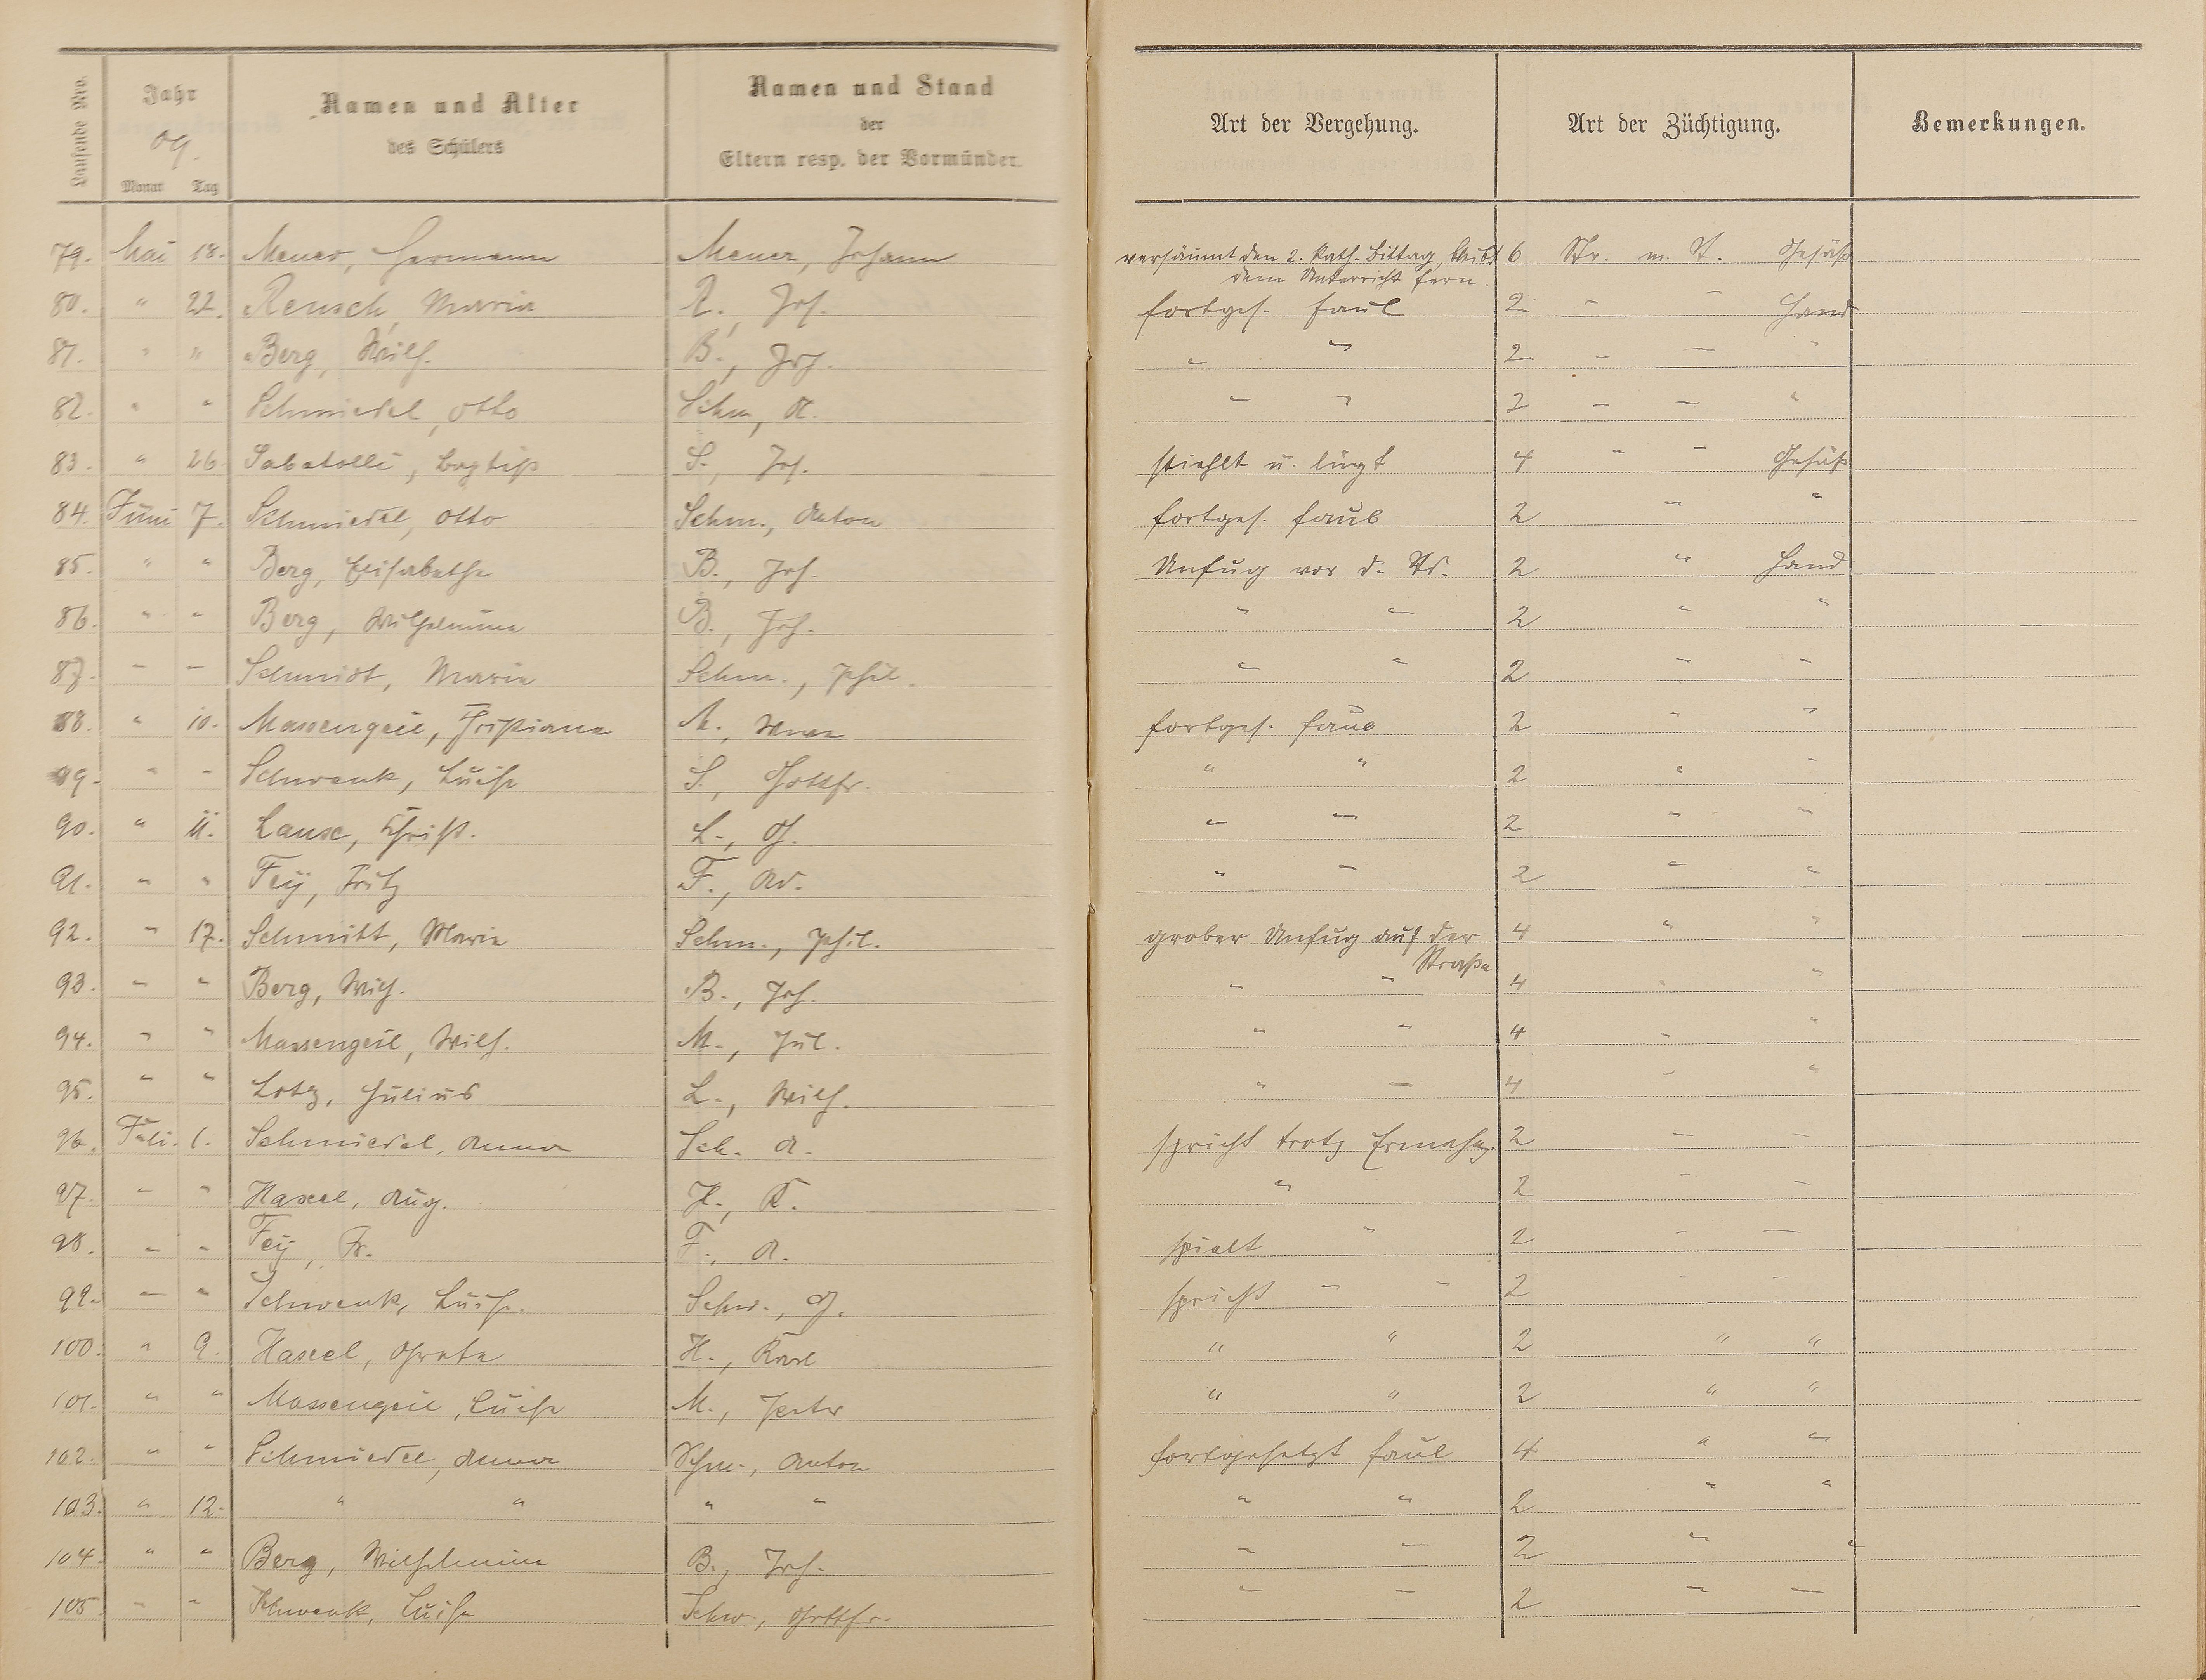 Laufende Nro.
Jahr
09.
Monat Tag
Namen und Alter
des Schülers
Namen und Stand
der
Eltern resp. der Vormünder.
Art der Vergehung.
Art der Züchtigung.
Bemerkungen.
79. Mai 18. Meuer, Hermann Meuer, Johann versäumt den 2. kath. Bittag, bleibt 6 Str. m. St. Gesäß
dem Unterricht fern.
80. " 22. Reusch, Maria R., Jos. fortges. faul 2 " " Hand
81. " " Berg, Wilh. B., Jos. " " 2 " " "
82. " " Schmiedel, Otto Schm, A. " " 2 " " "
83. " 26. Sabatolli, Baptist S., Jos. stiehlt u. lügt 4 " " Gesäß
84. Juni 7. Schmiedel, Otto Schm., Anton fortges. faul 2 " "
85. " " Berg, Elisabetha B., Jos. Unfug vor d. St. 2 " Hand
86. " " Berg, Wilhelmine B., Jos. " " 2 " "
87. " " Schmidt, Maria Schm., Phil. " " 2 " "
88. " 10. Massengeil, Christiane M., fortges. faul 2 " "
89. " " Schwenk, Luise S., Gottfr. " " 2 " "
90. " 11. Laux, Christ. L., G. " " 2 " "
91. " " Fey, Fritz F., Ad. " " 2 " "
92. " 17. Schmitt, Maria Schm., Phil. grober Unfug auf der 4 " "
Straße
93. " " Berg, Wilh. B., Jos. " " 4 " "
94. " " Massengeil, Wilh. M., Jul. " " 4 " "
95. " " Lotz, Julius L., Wilh. " " 4 " "
96. Juli. 1. Schmiedel, Anna Sch. A. spricht trotz Ermahng. 2 " "
97. " " Hassel, Aug. H., K. " 2 " "
98. " " Fey, Fr. F., A. spielt " 2 " "
99. " " Schwenk, Luise. Schw., G. spricht " " 2 " "
100. " 9. Hassel, Greta H., Karl " " 2 " "
101. " " Massengeil, Luise M., Peter " " 2 " "
102. " " Schmiedel, Anna Schm., Anton fortgesetzt faul 4 " "
103. " 12. " " " " " " 2 " "
104. " " Berg, Wilhelmine B., Jos. " " 2 " "
105 " " Schwenk, Luise Schw., Gottfr. " " 2 " "